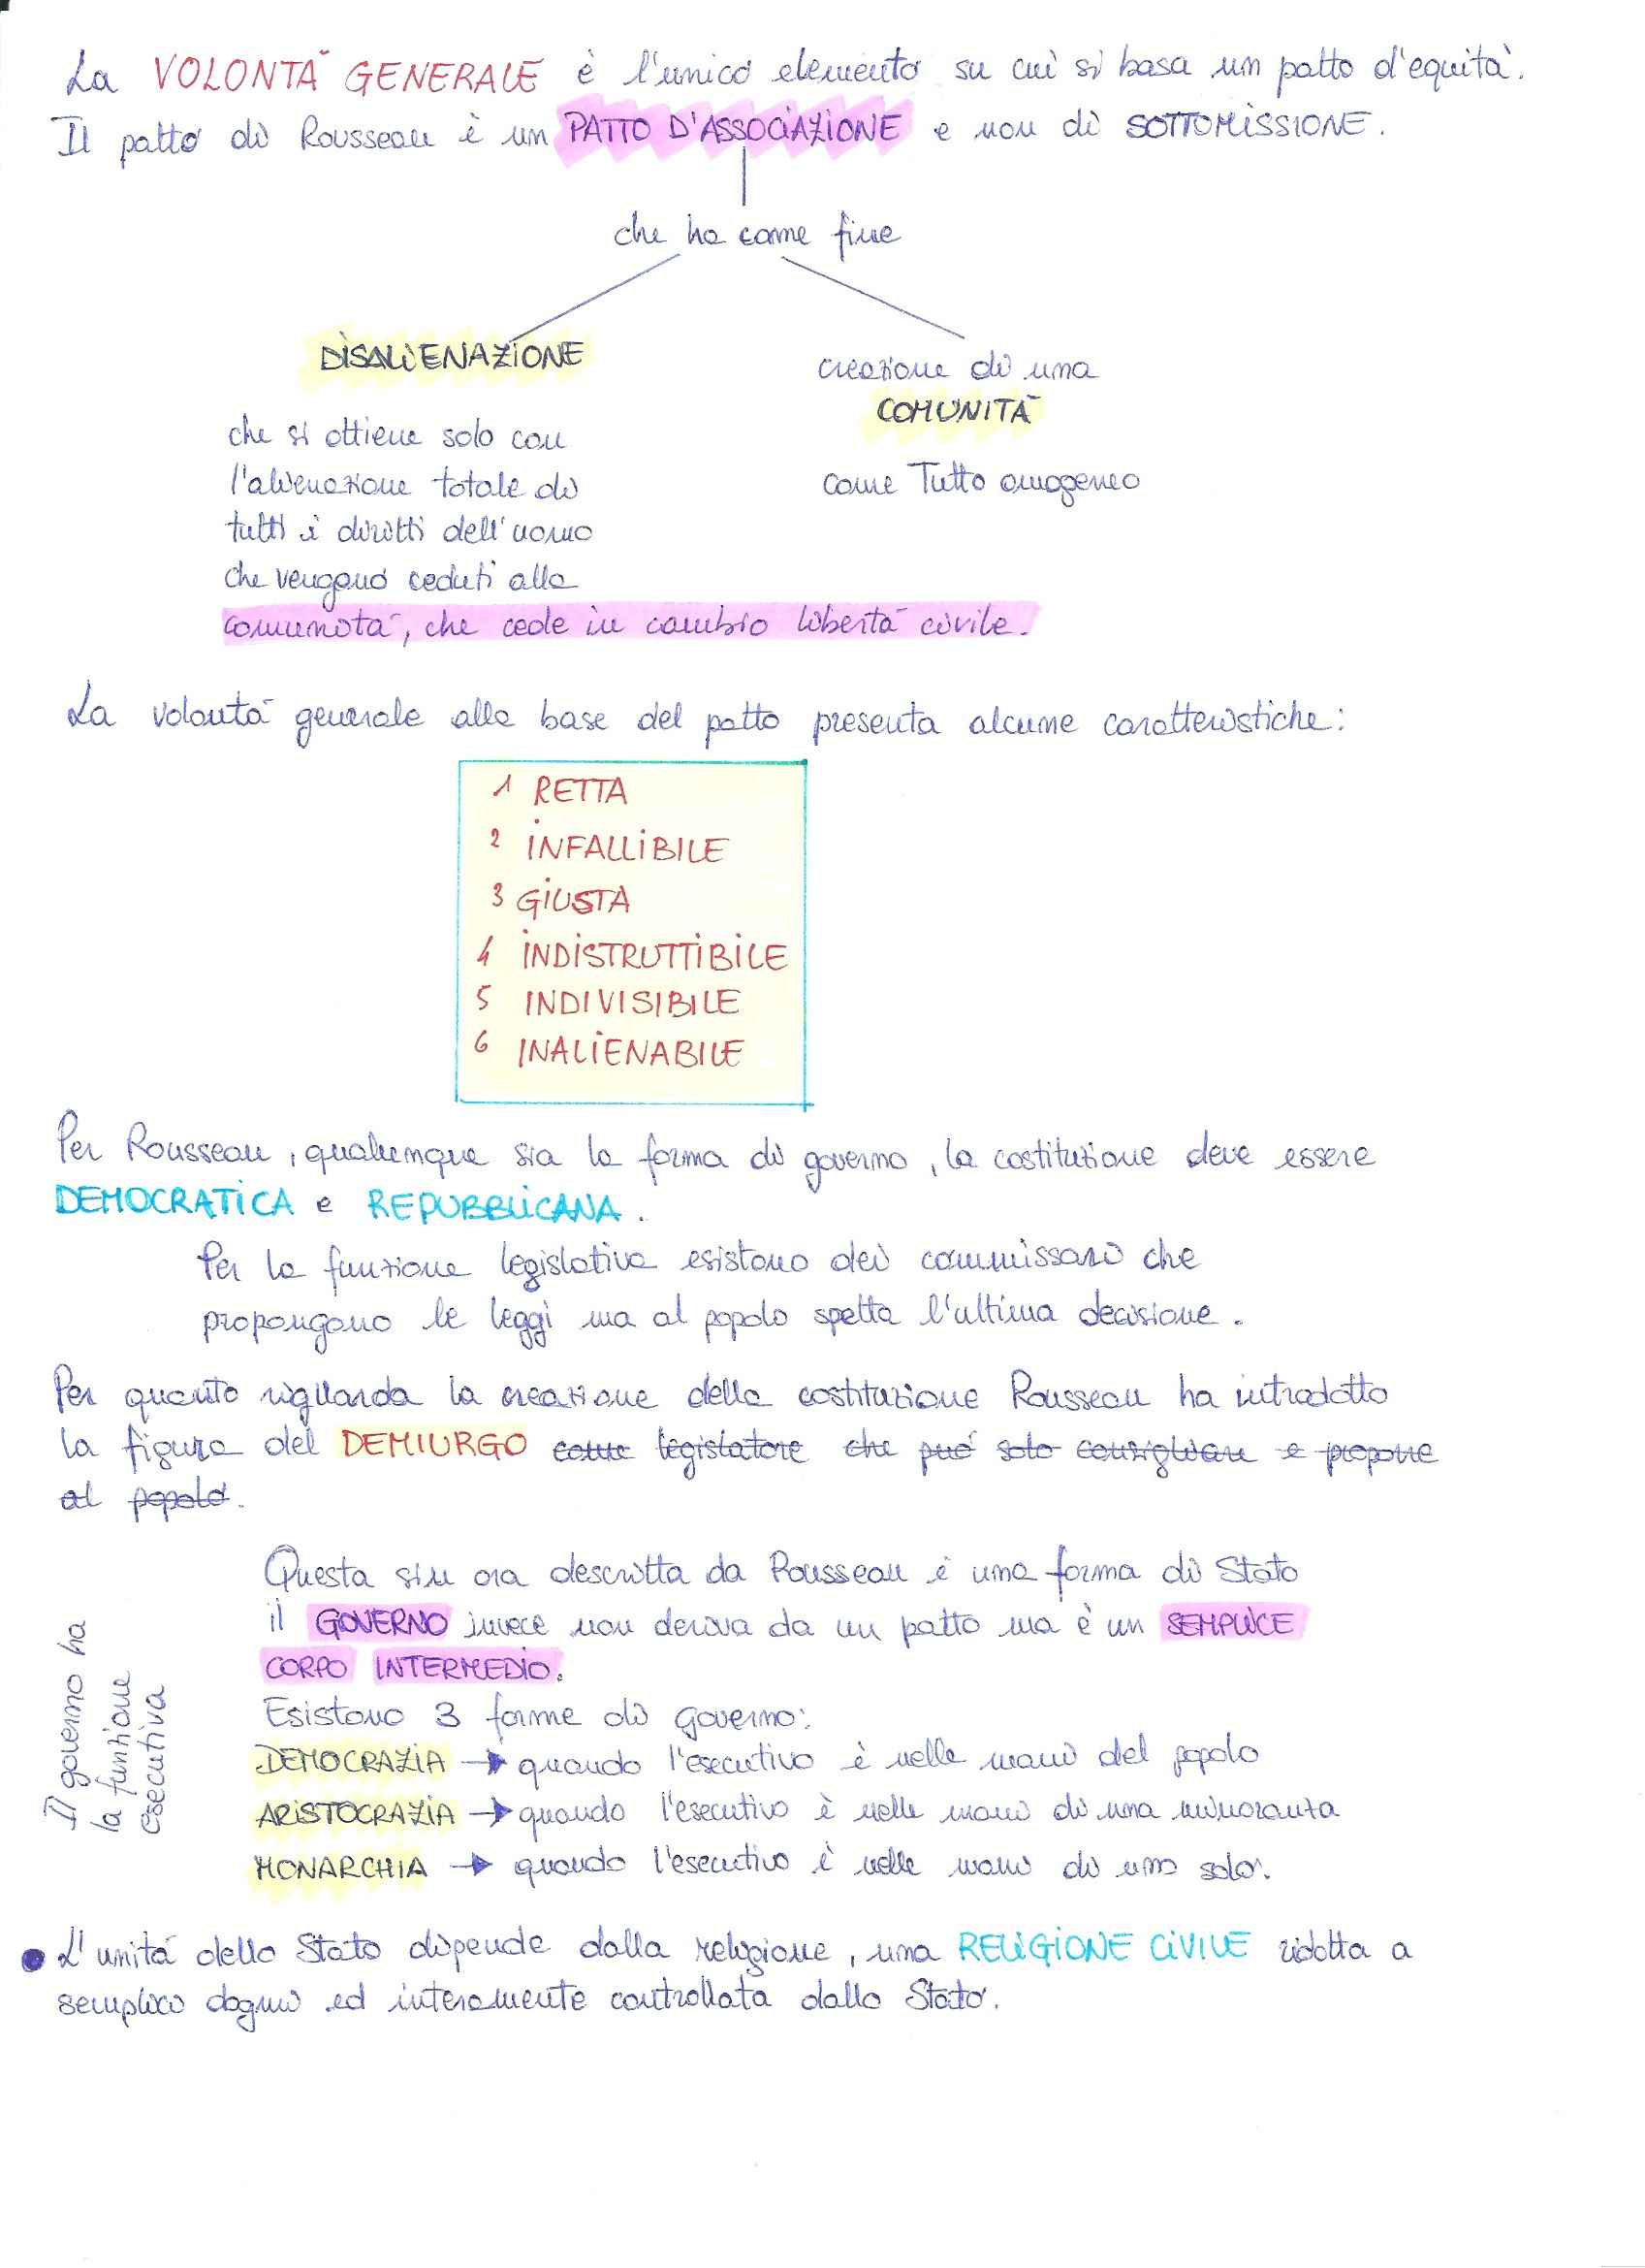 La VOLONTÀ GENERALE è l'unico elemento su cui si basa un patto d'equità.
Il patto di Rousseau è un PATTO D'ASSOCIAZIONE e non di SOTTOMISSIONE.
che ha come fine
DISALIENAZIONE
che si ottiene solo con
l'alienazione totale di
tutti i diritti dell'uomo
che vengono ceduti alla
comunità, che cede in cambio libertà civile.
creazione di una
COMUNITÀ
come Tutto omogeneo
La volontà generale alla base del patto presenta alcune caratteristiche:
1 RETTA
2 INFALLIBILE
3 GIUSTA
4 INDISTRUTTIBILE
5 INDIVISIBILE
6 INALIENABILE
Per Rousseau, qualunque sia la forma di governo, la costituzione deve essere
DEMOCRATICA e REPUBBLICANA.
Per la funzione legislativa esistono dei commissari che
propongono le leggi ma al popolo spetta l'ultima decisione.
Per quanto riguarda la creazione della costituzione Rousseau ha introdotto
la figura del DEMIURGO come legislatore che può solo consigliare e proporre
al popolo.
Questa sin ora descritta da Rousseau è una forma di Stato
il GOVERNO invece non deriva da un patto ma è un SEMPLICE
CORPO INTERMEDIO.
Esistono 3 forme di governo:
DEMOCRAZIA → quando l'esecutivo è nelle mani del popolo
ARISTOCRAZIA → quando l'esecutivo è nelle mani di una minoranza
MONARCHIA → quando l'esecutivo è nelle mani di uno solo.
Il governo ha
la funzione
esecutiva
• L'unità dello Stato dipende dalla religione, una RELIGIONE CIVILE ridotta a
semplici dogmi ed interamente controllata dallo Stato.